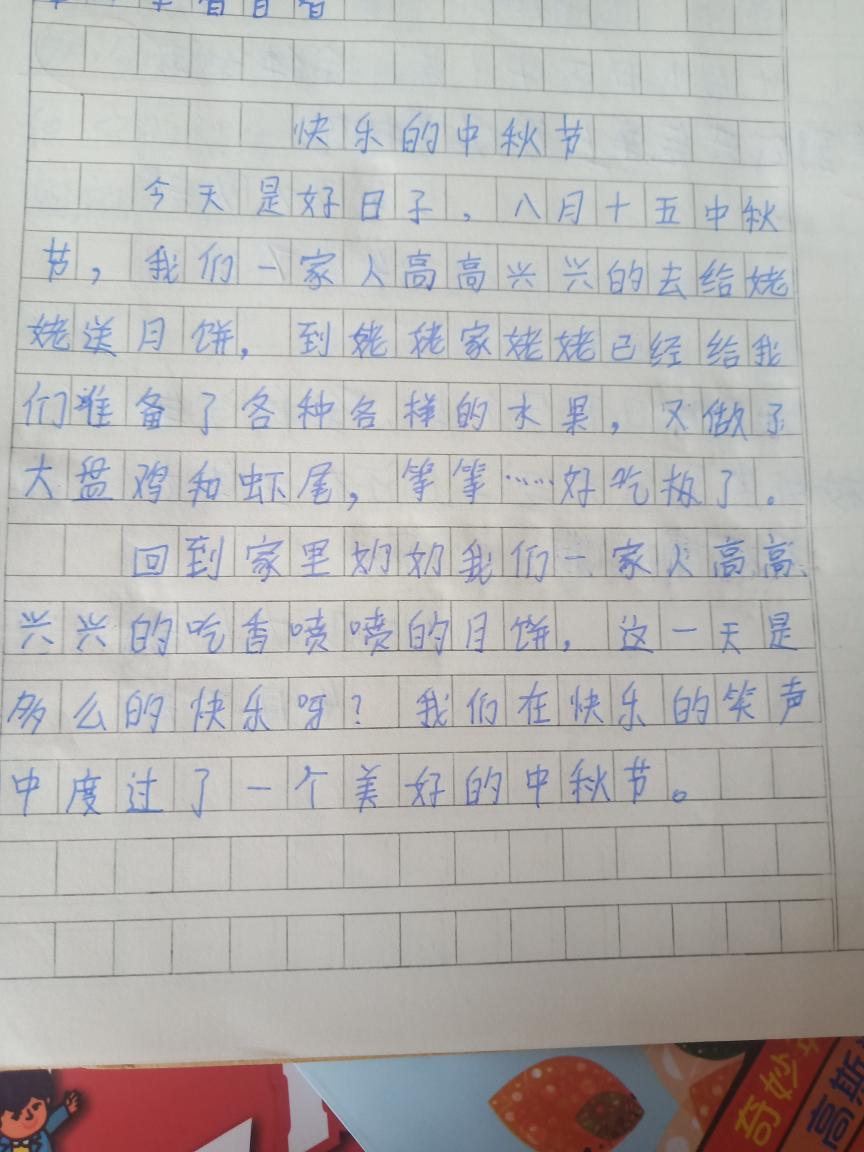 快乐的中秋节
今天是好日子，八月十五中秋
节，我们一家人高高兴兴的去给姥
姥送月饼，到姥姥家姥姥已经给我
们准备了各种各样的水果，又做了
大盘鸡和虾尾，等等……好吃极了。
回到家里奶奶我们一家人高高
兴兴的吃香喷喷的月饼，这一天是
多么的快乐呀？我们在快乐的笑声
中度过了一个美好的中秋节。
奇妙
高斯